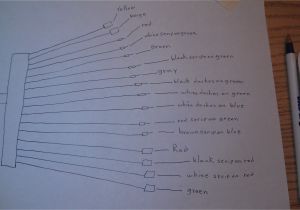 Yellow
beige
red
green
black strip on green
gray
black dashes on green
white dashes on green
white dashes on blue
red strip on green
brown strip on blue
Red
black strip on red
white strip on red
green